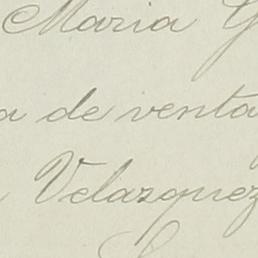 Maria G
a de venta
Velazquez